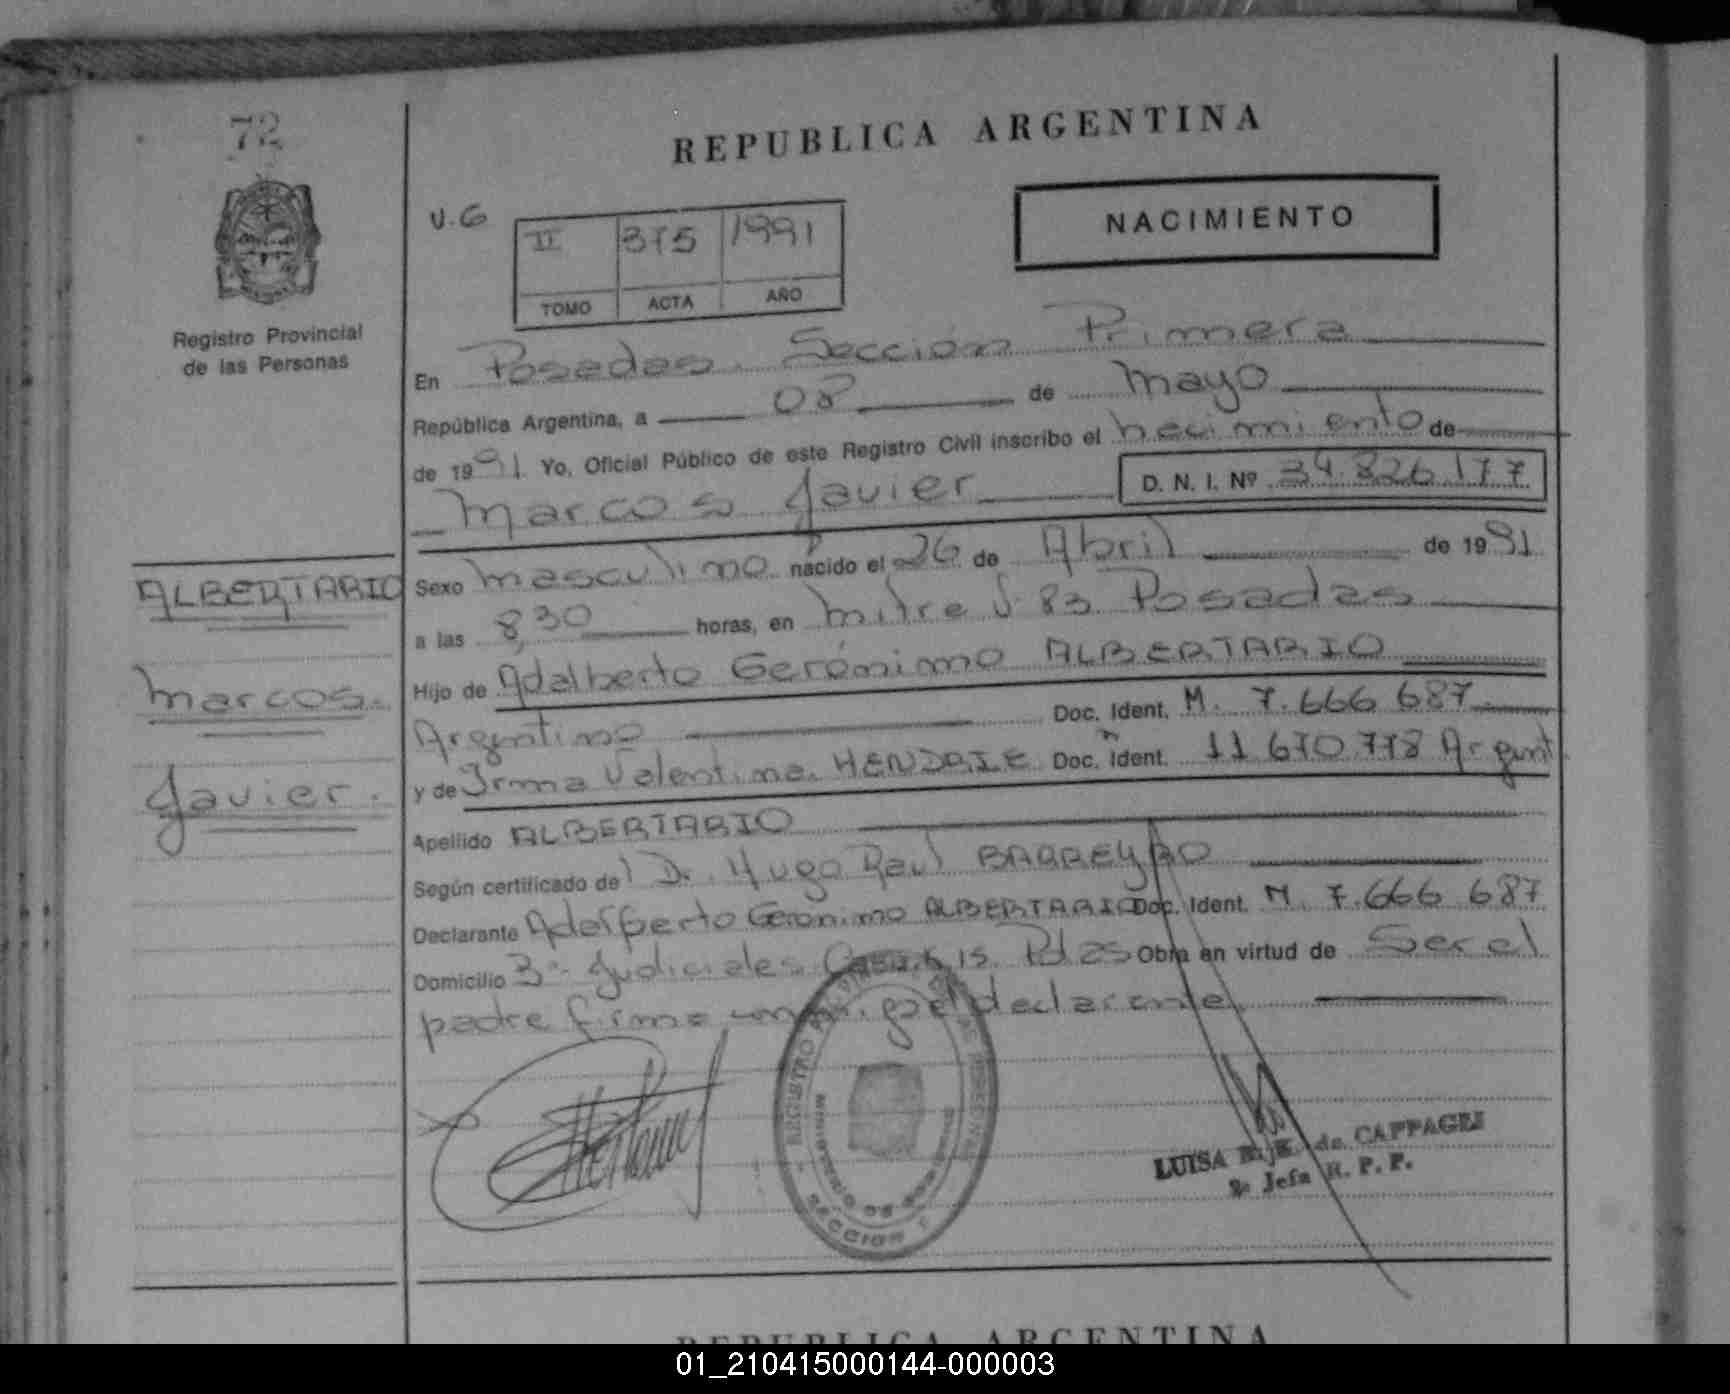 72
REPUBLICA ARGENTINA
V.G
II 375 1991
TOMO ACTA AÑO
NACIMIENTO
Registro Provincial
de las Personas
En Posadas. Sección Primera
República Argentina, a 08 de Mayo
de 1991. Yo, Oficial Público de este Registro Civil inscribo el nacimiento de
Marcos Javier D. N. I. Nº 34.826.177
Sexo masculino nacido el 26 de Abril de 1991
a las 8,30 horas, en Mitre 83 Posadas
Hijo de Adalberto Gerónimo ALBERTARIO
Argentino Doc. Ident. M. 7.666 687.
y de Irma Valentina HENDRIE Doc. Ident. 11 670 778 Argent
Apellido ALBERTARIO
Según certificado del Dr. Hugo Raul BARREYRO
Declarante Adalberto Gerónimo ALBERTARIO Doc. Ident. M. 7.666 687
Domicilio 3 Judiciales Casa 15. Pdas Obra en virtud de Ser el
padre firma el declarante
ALBERTARIO
Marcos.
Javier.
REGISTRO
SECCION
LUISA de CAPPAGLI
2º Jefa R. P. P.
REPUBLICA ARGENTINA
01_210415000144-000003